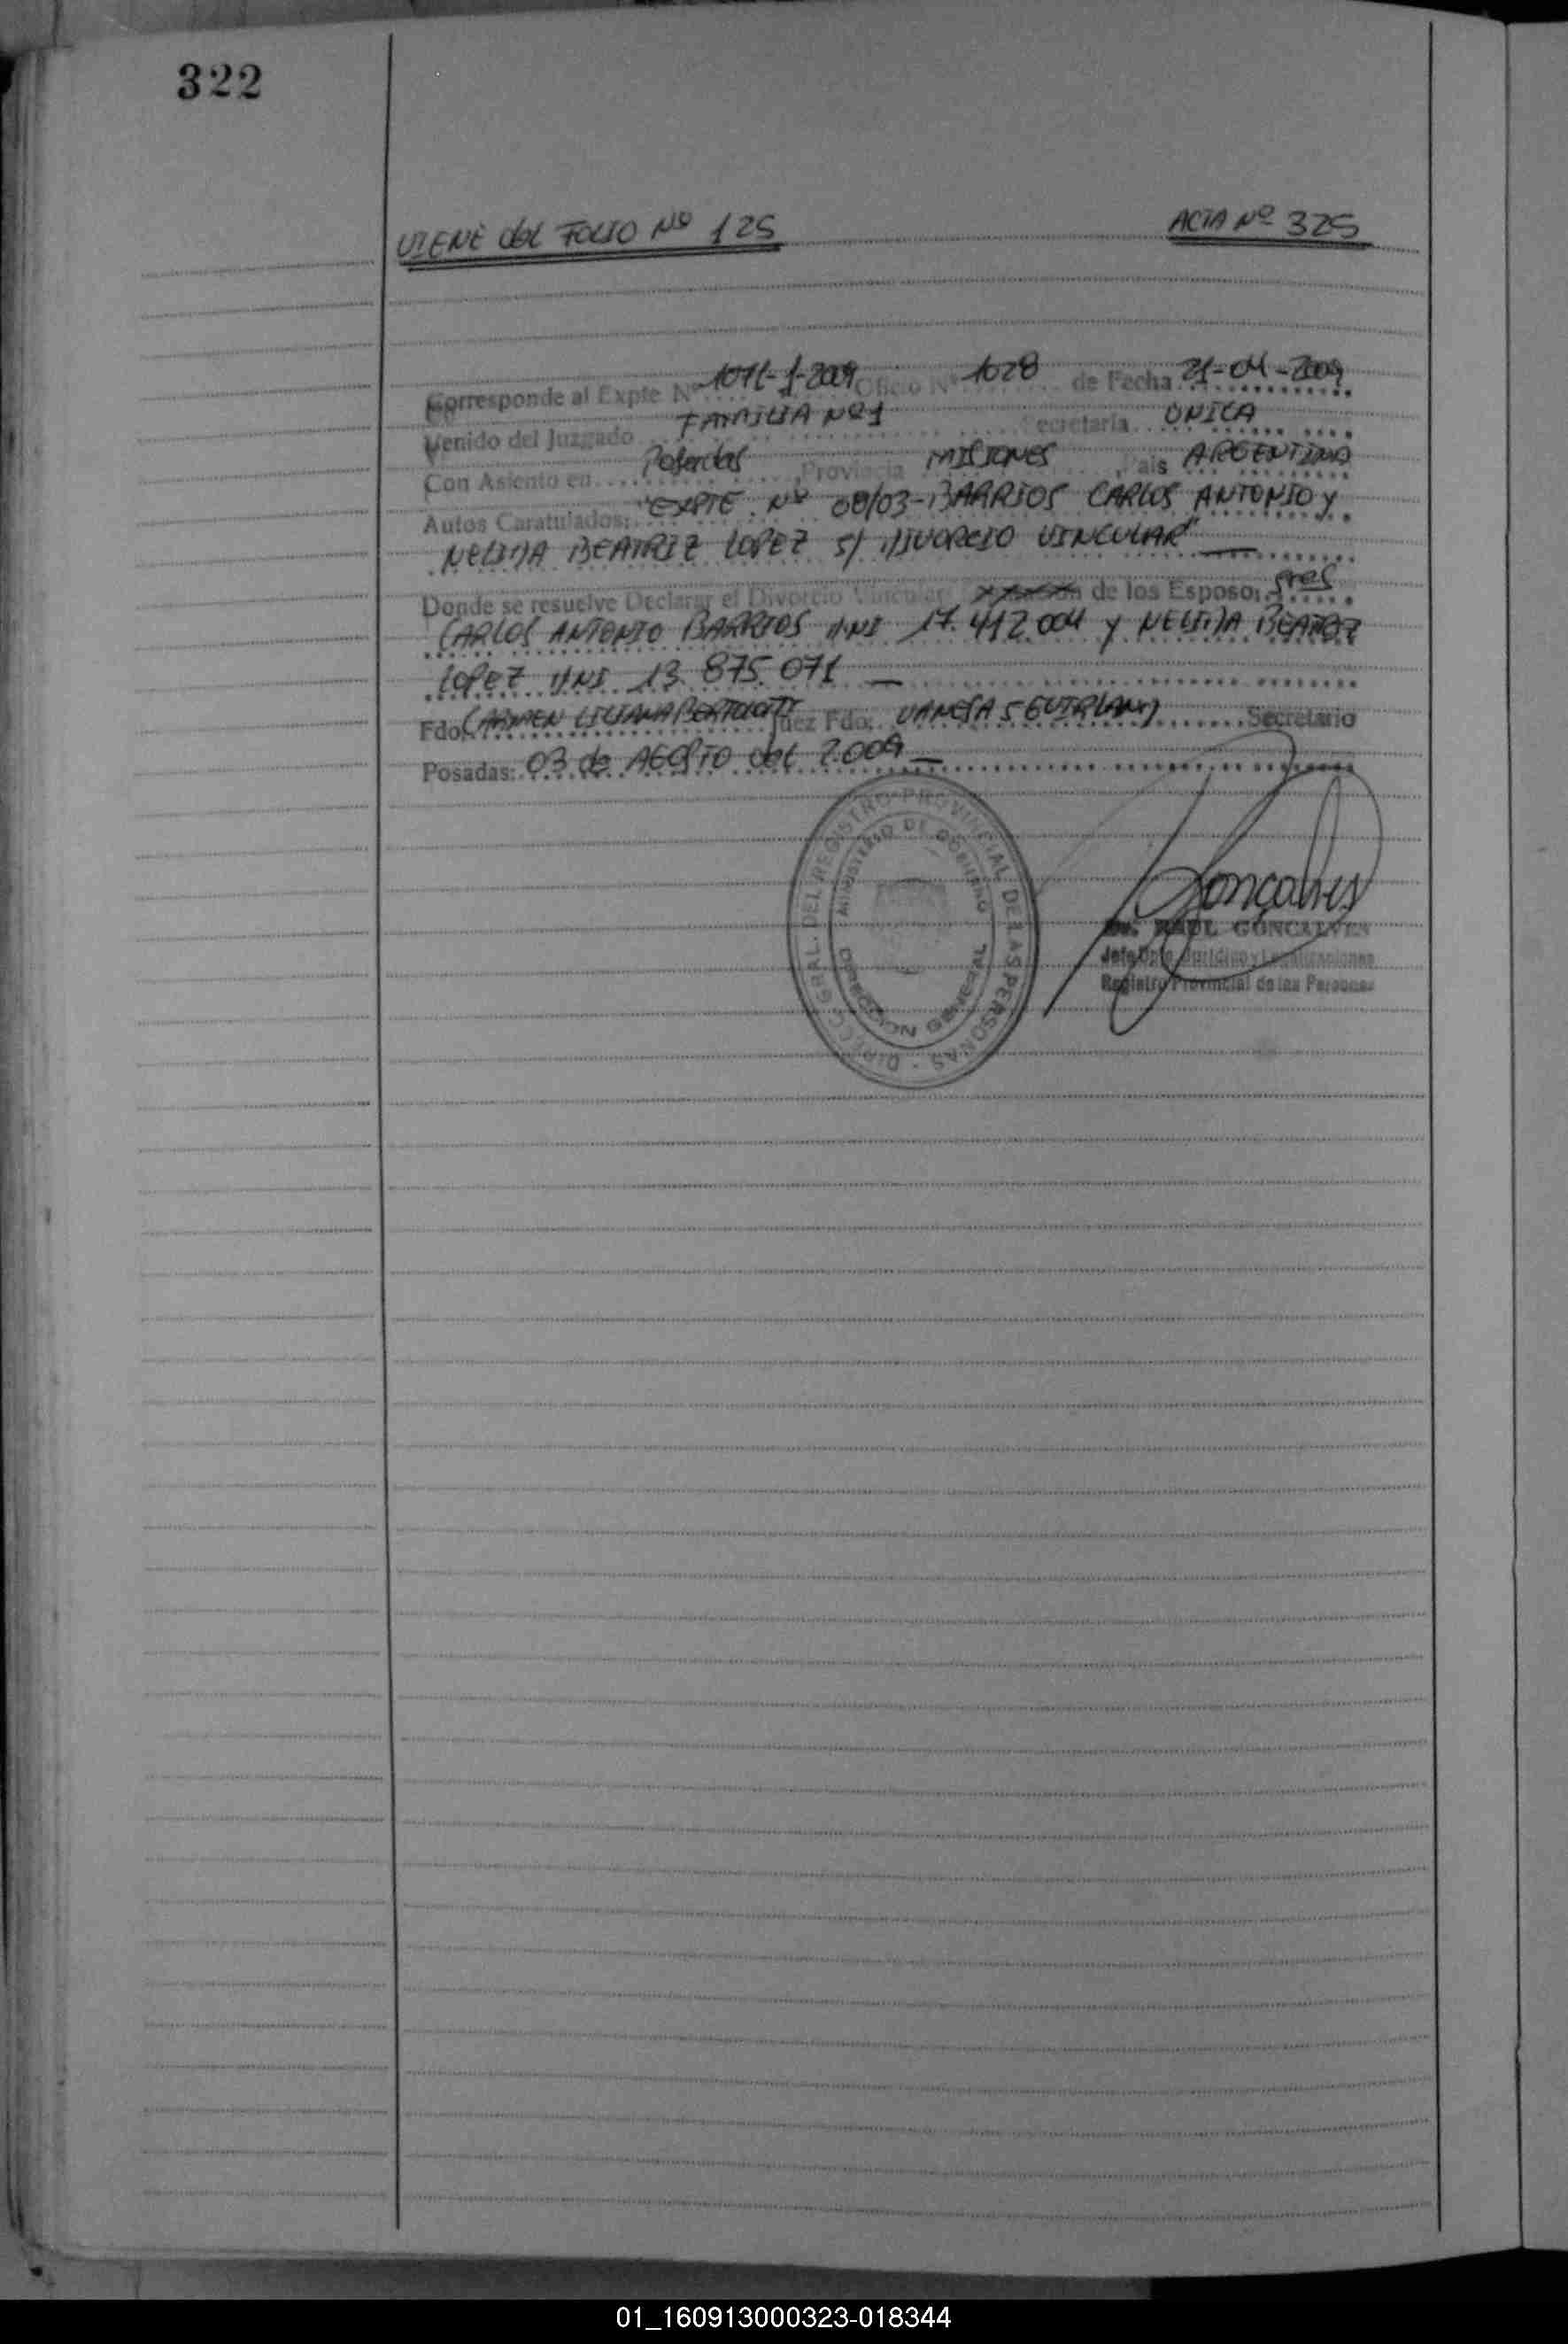 322
VIENE del FOLIO Nº 125 ACTA Nº 325
Corresponde al Expte Nº 1071-J-2009 Oficio Nº 1028 de Fecha 21-04-2009
Venido del Juzgado FAMILIA Nº1 Secretaria UNICA
Con Asiento en Posadas, Provincia MISIONES, Pais ARGENTINA
Autos Caratulados: "EXPTE. Nº 08/03-BARRIOS CARLOS ANTONIO y
NELIDA BEATRIZ LOPEZ S/ DIVORCIO VINCULAR"
Donde se resuelve Declarar el Divorcio Vincular de los Esposos: Sres
CARLOS ANTONIO BARRIOS DNI 17.412.004 y NELIDA BEATRIZ
LOPEZ DNI 13.875.071
Fdo. CARMEN LILIANA Juez Fdo: VANESA Secretario
Posadas: 03 de AGOSTO del 2.009
DIRECC. GRAL. DEL REGISTRO PROVINCIAL DE LAS PERSONAS
MINISTERIO DE GOBIERNO
Goncalves
Dr. RAUL GONCALVES
Jefe Dpto. Jurídico y Legalizaciones
Registro Provincial de las Personas
01_160913000323-018344